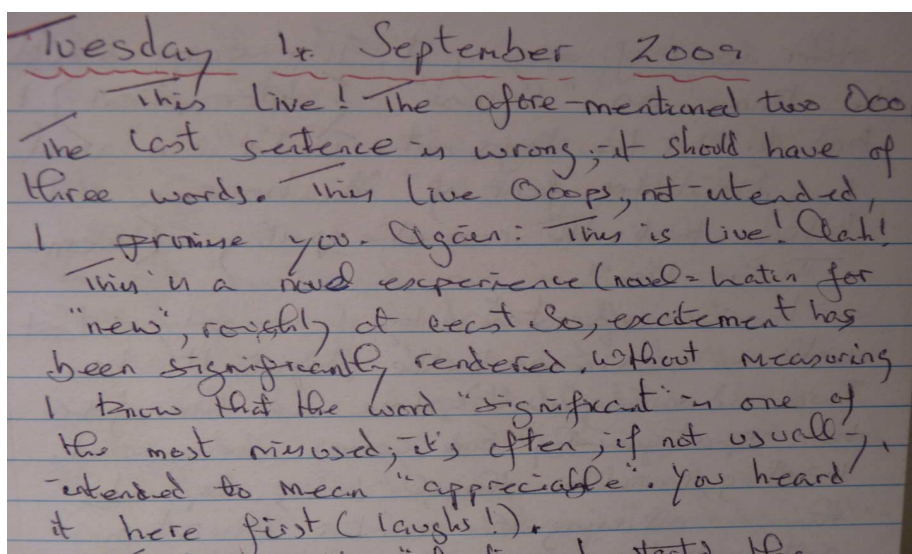 Tuesday 1st September 2009
This live! The afore-mentioned two Ooo
The last sentence is wrong; it should have of
three words. This live Ooops, not intended,
I promise you. Again: This is live! Aah!
This is a novel experience (novel = Latin for
"new", roughly at least. So, excitement has
been significantly rendered. Without measuring
I know that the word "significant" is one of
the most misused; it's often, if not usually,
intended to mean "appreciable". You heard
it here first (laughs!).